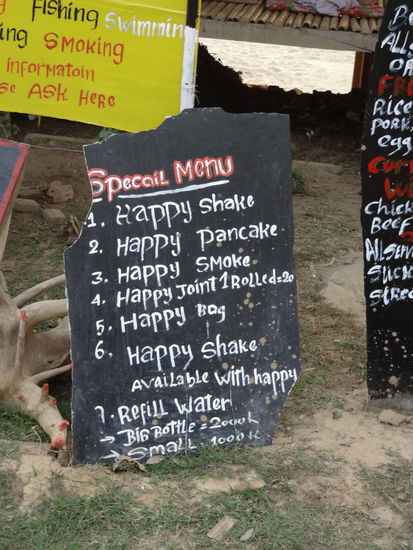 Fishing Swimming
ing Smoking
informatoin
Ask Here
Specail Menu
1. Happy Shake
2. Happy Pancake
3. Happy Smoke
4. Happy Joint 1 Rolled=20
5. Happy Bag
6. Happy Shake
Available with happy
7. Refill Water
→ Big Bottle = 2000k
→ Small = 1000k
Rice
Pork
egg
Chick
Beef